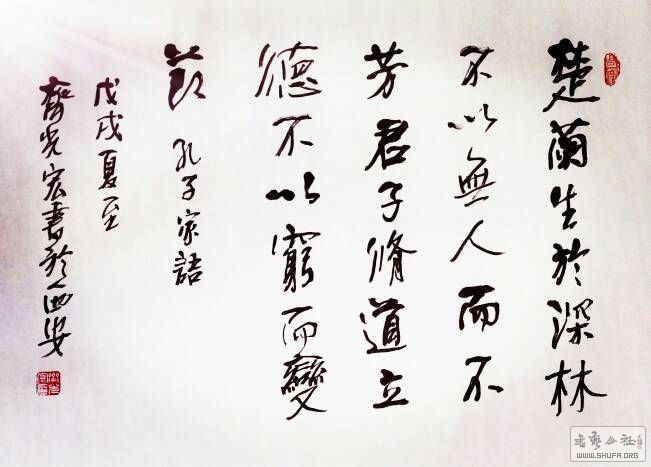 楚蘭生於深林
不以無人而不
芳君子脩道立
德不以窮而變
節 孔子家語
戊戌夏至
齊光宏書於西安
书艺公社
WWW.SHUFA.ORG